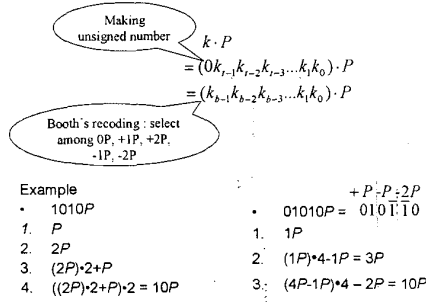 Making
unsigned number
k · P
= (0k_{t-1}k_{t-2}k_{t-3}...k_1k_0) · P
= (k_{b-1}k_{b-2}k_{b-3}...k_1k_0) · P
Booth's recoding : select
among 0P, +1P, +2P,
-1P, -2P
Example
• 1010P
1. P
2. 2P
3. (2P)•2+P
4. ((2P)•2+P)•2 = 10P
+P -P -2P
• 01010P = 010 1 1 0
1. 1P
2. (1P)•4-1P = 3P
3. (4P-1P)•4 – 2P = 10P